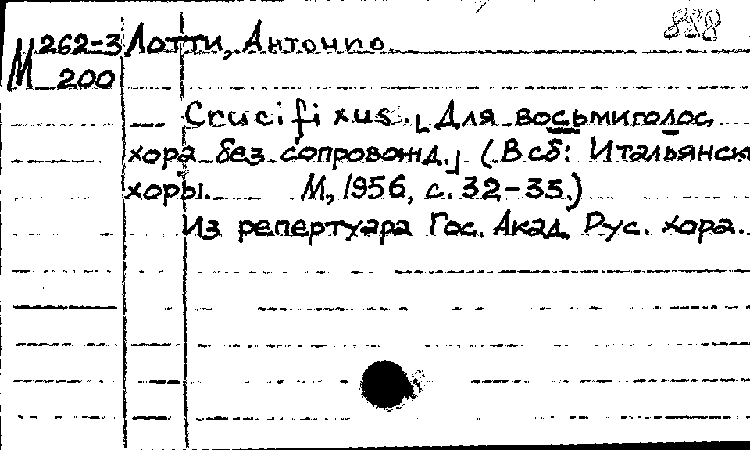 888
М 262-3 Лотти, Антонио.
М 200
— Crucifixus. [Для восьмиголос.
хора без сопровожд.] (В сб: Итальянск
хоры. М, 1956, с. 32-35.)
Из репертуара Гос. Акад. Рус. хора.